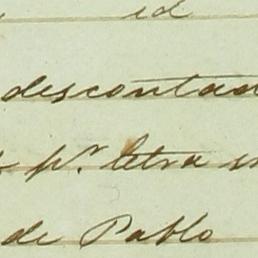 id
descontad
pr. letra s
de Pablo